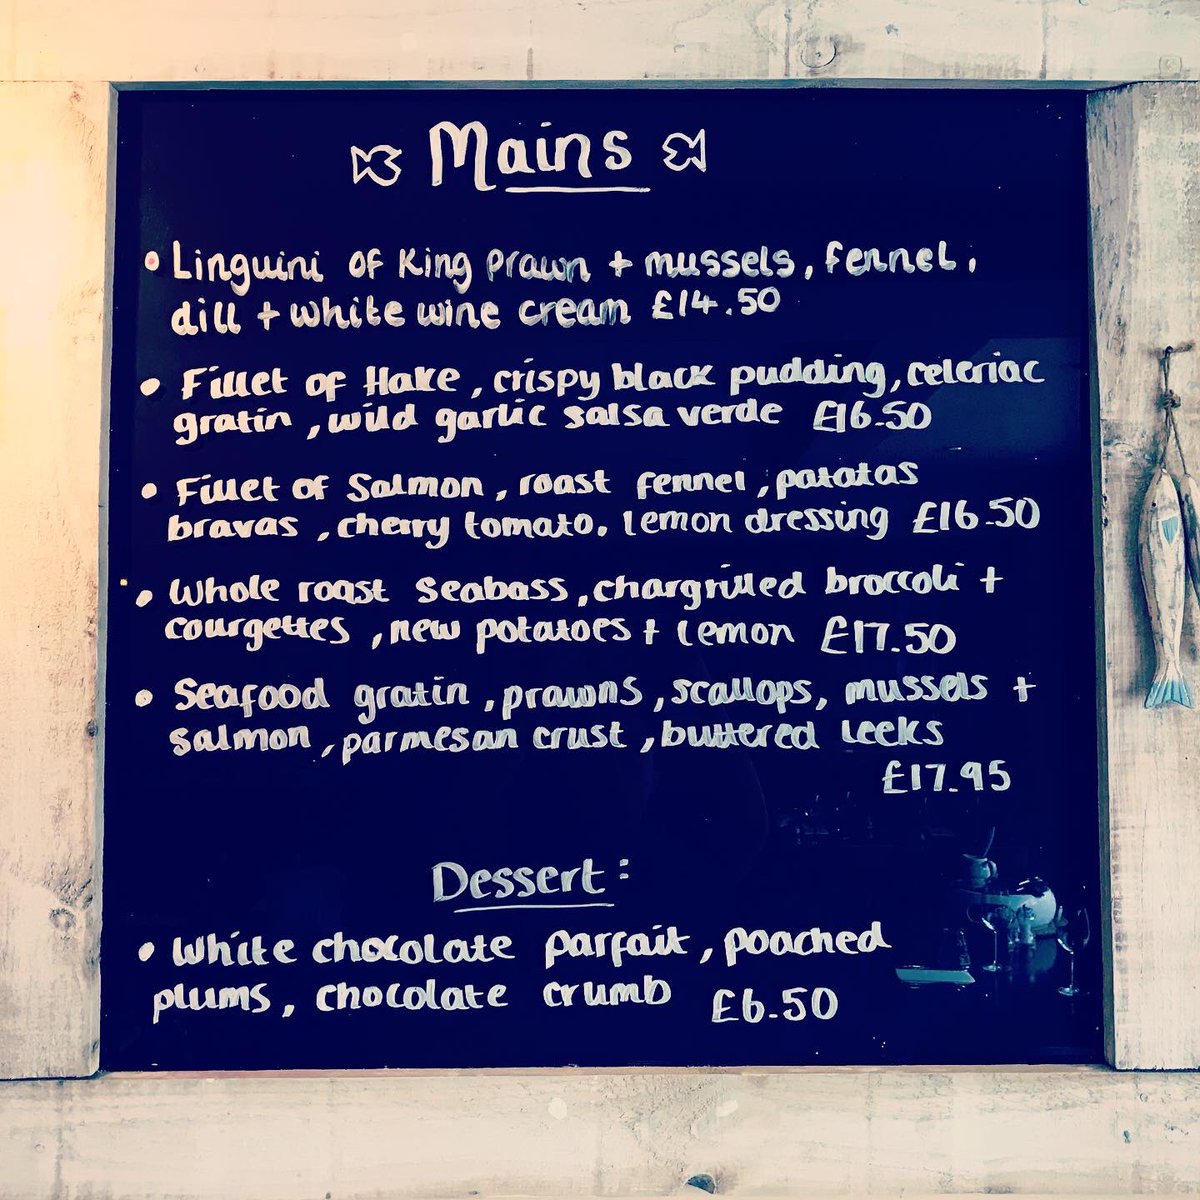 Mains
• Linguini of King Prawn + mussels, fennel,
dill + white wine cream £14.50
• Fillet of Hake, crispy black pudding, celeriac
gratin, wild garlic salsa verde £16.50
• Fillet of Salmon, roast fennel, patatas
bravas, cherry tomato, lemon dressing £16.50
• Whole roast Seabass, chargrilled broccoli +
courgettes, new potatoes + lemon £17.50
• Seafood gratin, prawns, scallops, mussels +
salmon, parmesan crust, buttered leeks
£17.95
Dessert:
• White chocolate parfait, poached
plums, chocolate crumb £6.50